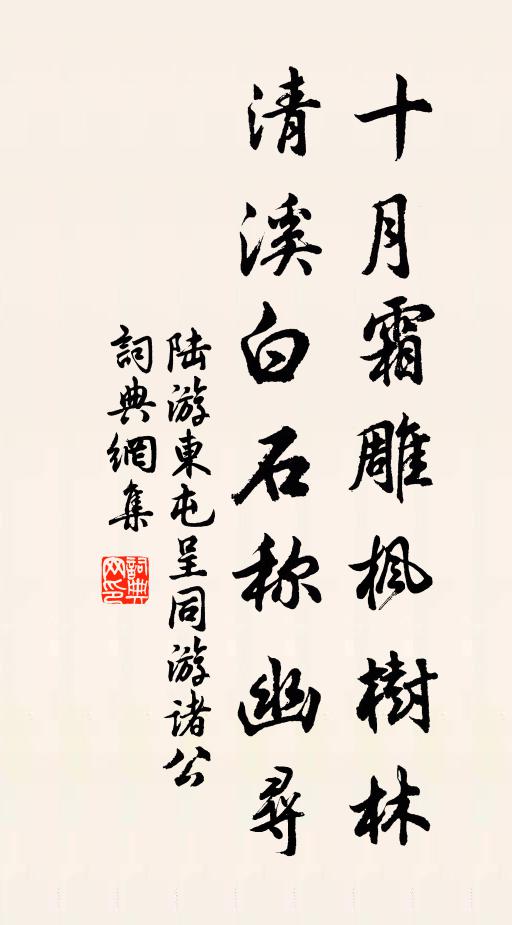 十月霜雕枫樹林
清溪白石称幽尋
陆游東屯呈同游诸公
詞典網集
詞典
网印